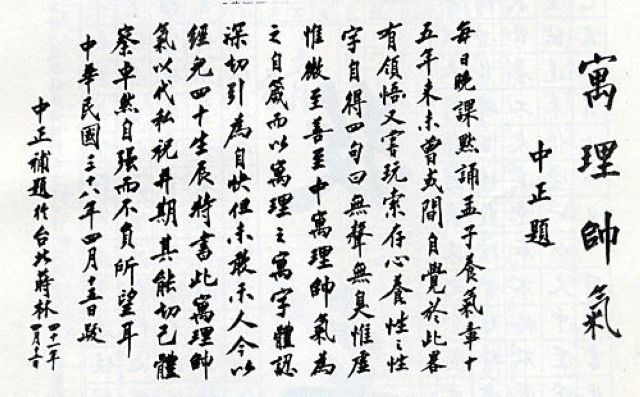 寓理帥氣
中正題
每日晚課默誦孟子養氣章十
五年來未曾或間自覺於此畧
有領悟又嘗玩索存心養性之性
字自得四句曰無聲無臭惟虛
惟微至善至中寓理帥氣為
之自箴而以寓理之寓字體認
深切引為自快但未敢示人今以
經兒四十生辰特書此寓理帥
氣以代私祝并期其能切己體
察卓然自強而不負所望耳
中華民國三十八年四月十五日跋
中正補題於台北蔣林
四十一年
四月日